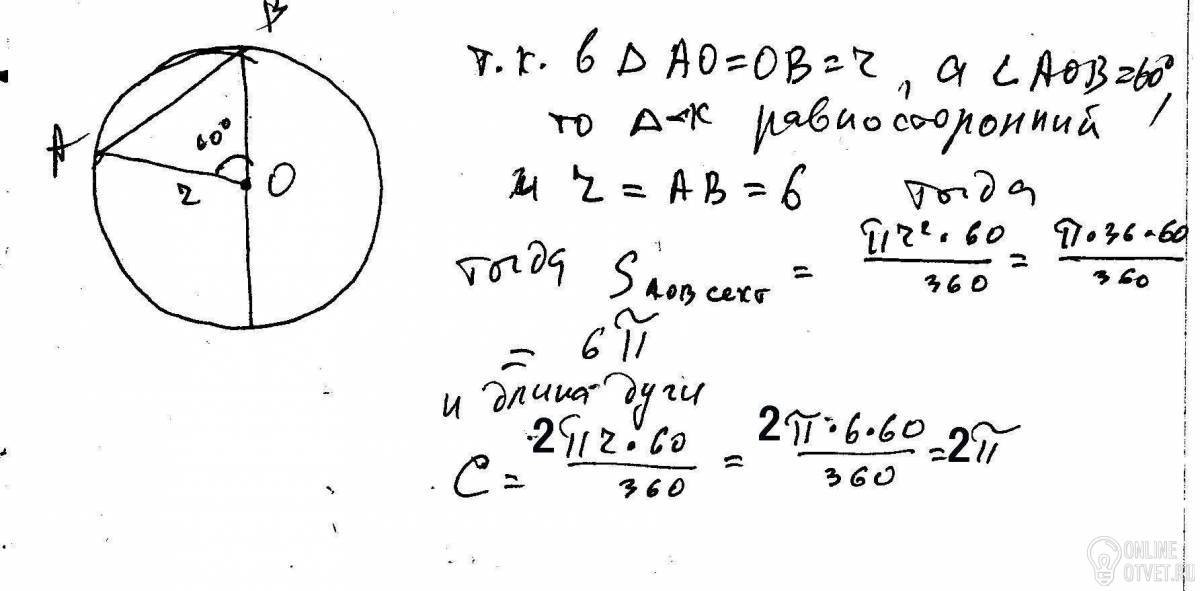 B
A
60°
r
O
т.к. в Δ AO=OB=r, а ∠AOB=60°,
то Δ-к равносторонний
и r = AB = 6 тогда
тогда S AOB сект = πr²·60/360 = π·36·60/360
= 6π
и длина дуги
C = 2πr·60/360 = 2π·6·60/360 = 2π
ONLINE
OTVET.RU